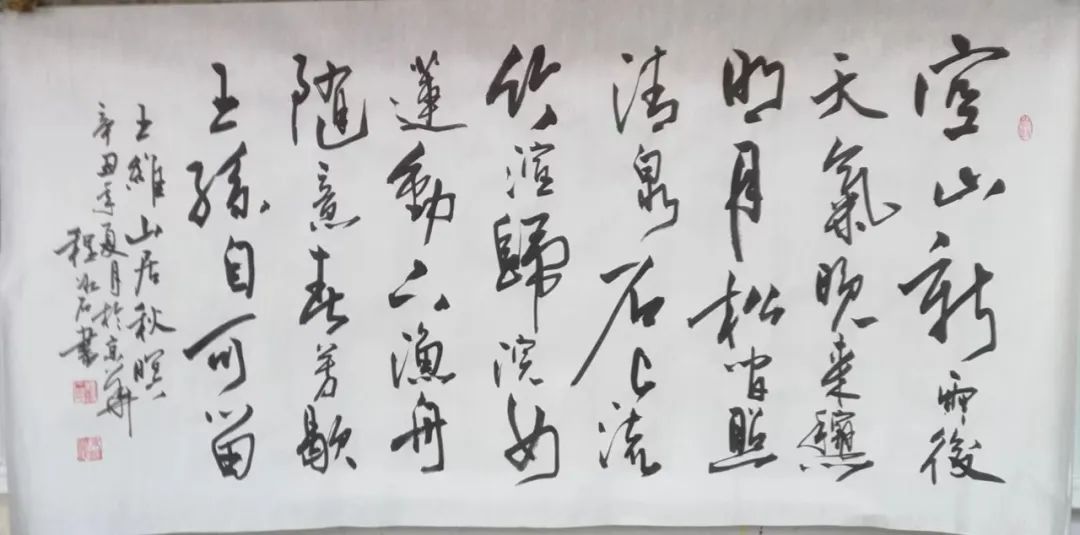 空山新雨後
天氣晚来龝
明月松間照
清泉石上流
竹喧歸浣女
蓮動下漁舟
随意春芳歇
王孫自可留
王維山居秋暝
辛丑年夏月於京華
程冰石書